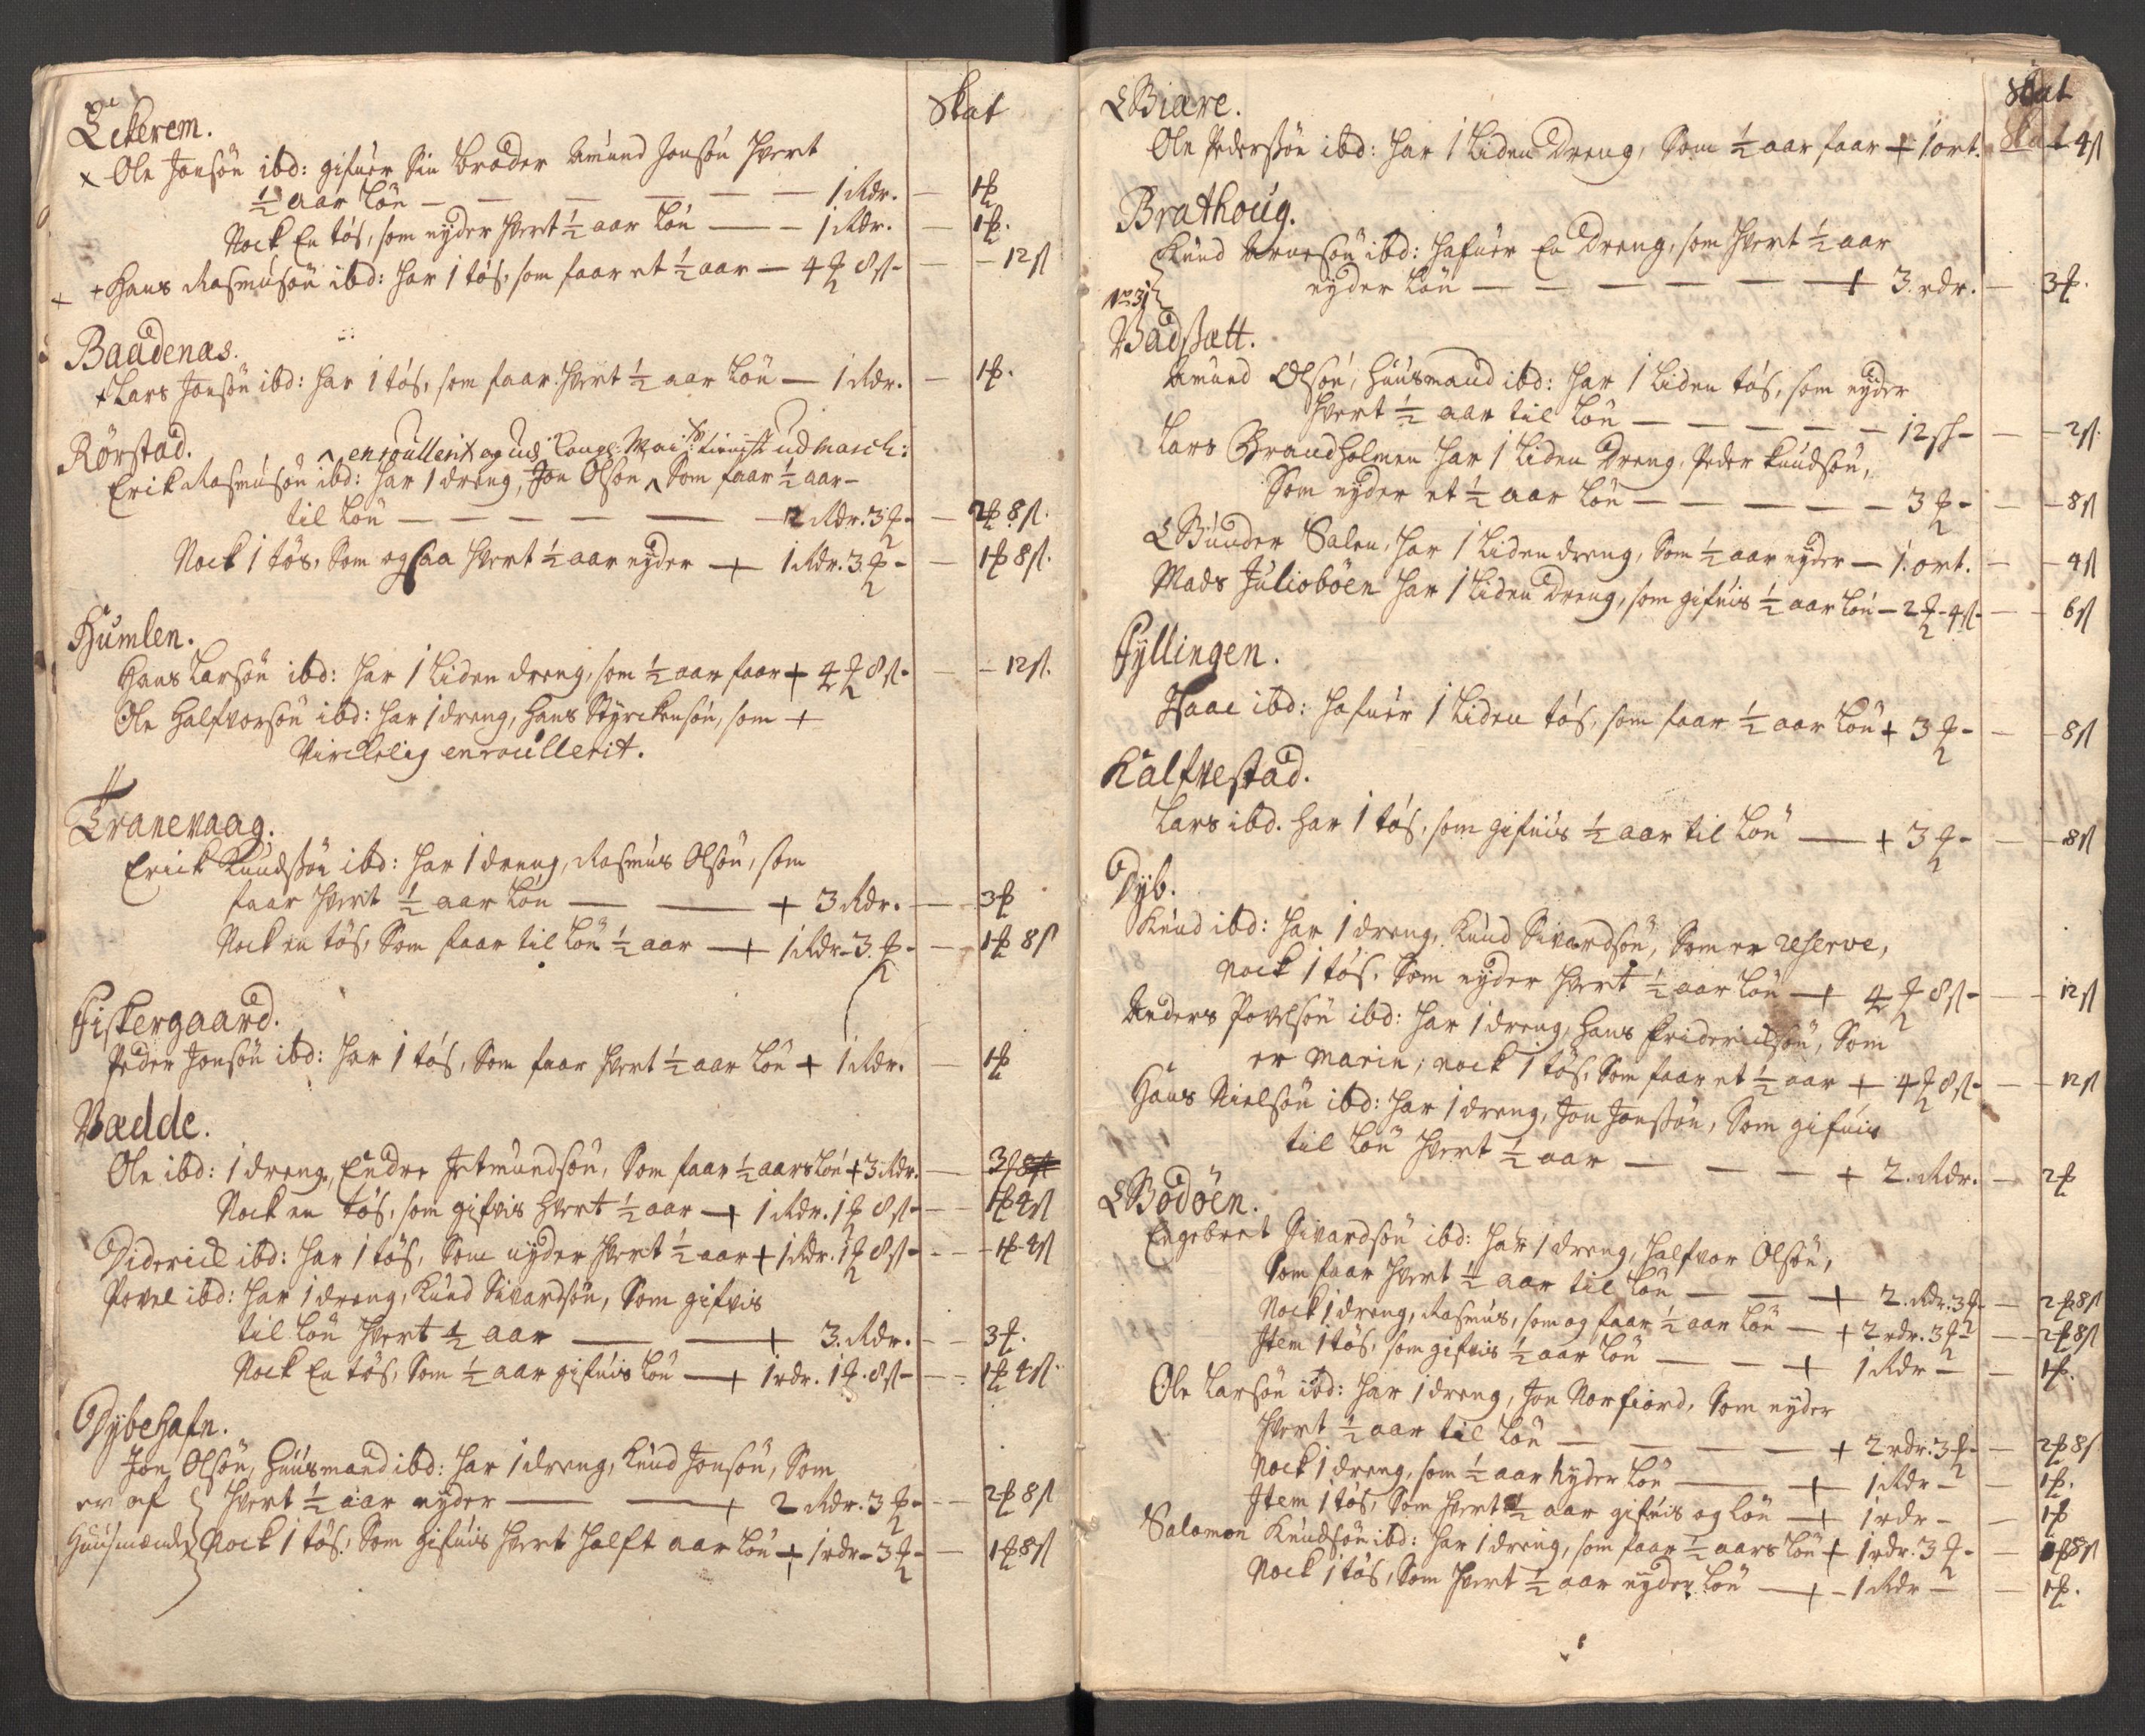 Skat
Eckerem.
x Ole Jonsøn ibd: gifuer Sin broder Amund Jonsøn hvert
½ aar Løn — — — — 1 Rdr. — 1 ₰
Nock En tøs, som nyder hvert ½ aar Løn — 1 Rdr. — 1 ₰.
+ + Hans Rasmusøn ibd: har 1 tøs, som faar et ½ aar — 4 ₰ 8 s — 12 s
Baadenæs.
+ Lars Jonsøn ibd: har 1 tøs, som faar hvert ½ aar Løn — 1 Rdr. — 1 ₰.
Rørstad.
^ enroullerit og udj Kongl: Maj:ts tieniste udmarch:
Erik Rasmusøn ibd: har 1 dreng, Jon Olsøn ^ Som faar ½ aar —
til Løn — — — — — 2 Rdr. 3 ₰ — 2 ₰ 8 s.
Nock 1 tøs, Som ogsaa hvert ½ aar nyder + 1 Rdr. 3 ₰ — 1 ₰ 8 s.
Humlen.
Hans Larsøn ibd: har 1 Liden dreng, som ½ aar faar + 4 ₰ 8 s — 12 s.
Ole Halfvorsøn ibd: har 1 dreng, Hans Styrckensøn, som +
Virckelig enroullerit.
Tranevaag.
Erick Knudssøn ibd: har 1 dreng, Rasmus Olsøn, som
faar hvert ½ aar Løn — — + 3 Rdr. — 3 ₰
Nock en tøs, Som faar til Løn ½ aar + 1 Rdr - 3 ₰ — 1 ₰ 8 s
Fiskergaard.
Peder Jonsøn ibd: har 1 tøs, Som faar hvert ½ aar Løn + 1 Rdr. — 1 ₰
Vædde.
Ole ibd: 1 dreng, Endre Jetmundsøn, Som faar ½ aars Løn + 3 Rdr. — 3 ₰
Nock en tøs, som gifvis hvert ½ aar + 1 Rdr. 1 ₰ 8 s — 1 ₰ 4 s
Diderich ibd: har 1 tøs, Som nyder hvert ½ aar + 1 Rdr. 1 ₰ 8 s — 1 ₰ 4 s
Povel ibd: har 1 dreng, Knud Sivardsøn, Som gifvis
til Løn hvert ½ aar — — + 3. Rdr. — 3 ₰.
Nock En tøs, Som ½ aar gifuis Løn + 1 rdr. 1 ₰. 8 s — 1 ₰ 4 s.
Dybehafn.
Jon Olsøn, Huusmand ibd: har 1 dreng, Knud Jonsøn, Som
er af hvert ½ aar nyder — — + 2 Rdr. 3 ₰ — 2 ₰ 8 s
Huusmænd Nock 1 tøs, Som Gifuis hvert halft aar Løn + 1 rdr - 3 ₰ — 1 ₰ 8 s
Skat
Biære.
Ole Pederssøn ibd: har 1 Liden Dreng, Som ½ aar faar + 1 ort. Skat 4 s
Brathoug.
Knud Arnesøn ibd: hafuer En Dreng, som hvert ½ aar
nyder Løn — — — — — + 3. rdr. — 3 ₰.
No 31
Vadsætt.
Amund Olsøn, Huusmand ibd: har 1 Liden tøs, som nyder
hvert ½ aar til Løn — — — — — 12 s — 2 s.
Lars Grandholmen har 1 Liden Dreng, Peder Knudsøn,
Som nyder et ½ aar Løn — — — — — 3 ₰ — 8 s
Gunder Salen, har 1 Liden dreng, Som ½ aar nyder — 1 ort. — 4 s
Mads Juliobøen har 1 Liden Dreng, som gifuis ½ aar Løn — 2 ₰ - 4 s — 6 s
Fyllingen.
Isaac ibd: hafuer 1 Liden tøs, som faar ½ aar Løn + 3 ₰ — 8 s
Kalfvestad.
Lars ibd. har 1 tøs, som gifuis ½ aar til Løn — + 3 ₰ — 8 s
Dyb.
Knud ibd: har 1 dreng, Knud Sivardsøn, Som er reserve,
nock 1 tøs, Som nyder hvert ½ aar Løn + 4 ₰ 8 s — 12 s
Anders Povelsøn ibd: har 1 dreng, Hans Friderichsøn, Som
er Marin, nock 1 tøs, Som faar et ½ aar + 4 ₰ 8 s — 12 s
Hans Nielsøn ibd: har 1 dreng, Jon Jonssøn, Som gifuis
til Løn hvert ½ aar — — — + 2. Rdr. — 2 ₰
Bodøen.
Engebret Sivardsøn ibd: har 1 dreng, Halfvor Olsøn,
Som faar hvert ½ aar til Løn — — + 2. Rdr. 3 ₰ — 2 ₰ 8 s
Nock 1 dreng, Rasmus, som og faar ½ aar Løn — + 2 rdr. 3 ₰ — 2 ₰ 8 s
Item 1 tøs, som gifvis ½ aar Løn — — + 1 Rdr — 1 ₰.
Ole Larsøn ibd: har 1 dreng, Jon Norfiord, Som nyder
hvert ½ aar til Løn — — — — + 2 rdr. 3 ₰ — 2 ₰ 8 s
Nock 1 dreng, som ½ aar nyder Løn — + 1 Rdr — 1 ₰.
Item 1 tøs, Som hvert ½ aar gifuis og Løn + 1 rdr — 1 ₰
Salomon Knudsøn ibd: har 1 dreng, som faar ½ aars Løn + 1 rdr. 3 ₰ — 1 ₰ 8 s
Nock 1 tøs, Som hvert ½ aar nyder Løn — + 1 Rdr — 1 ₰.